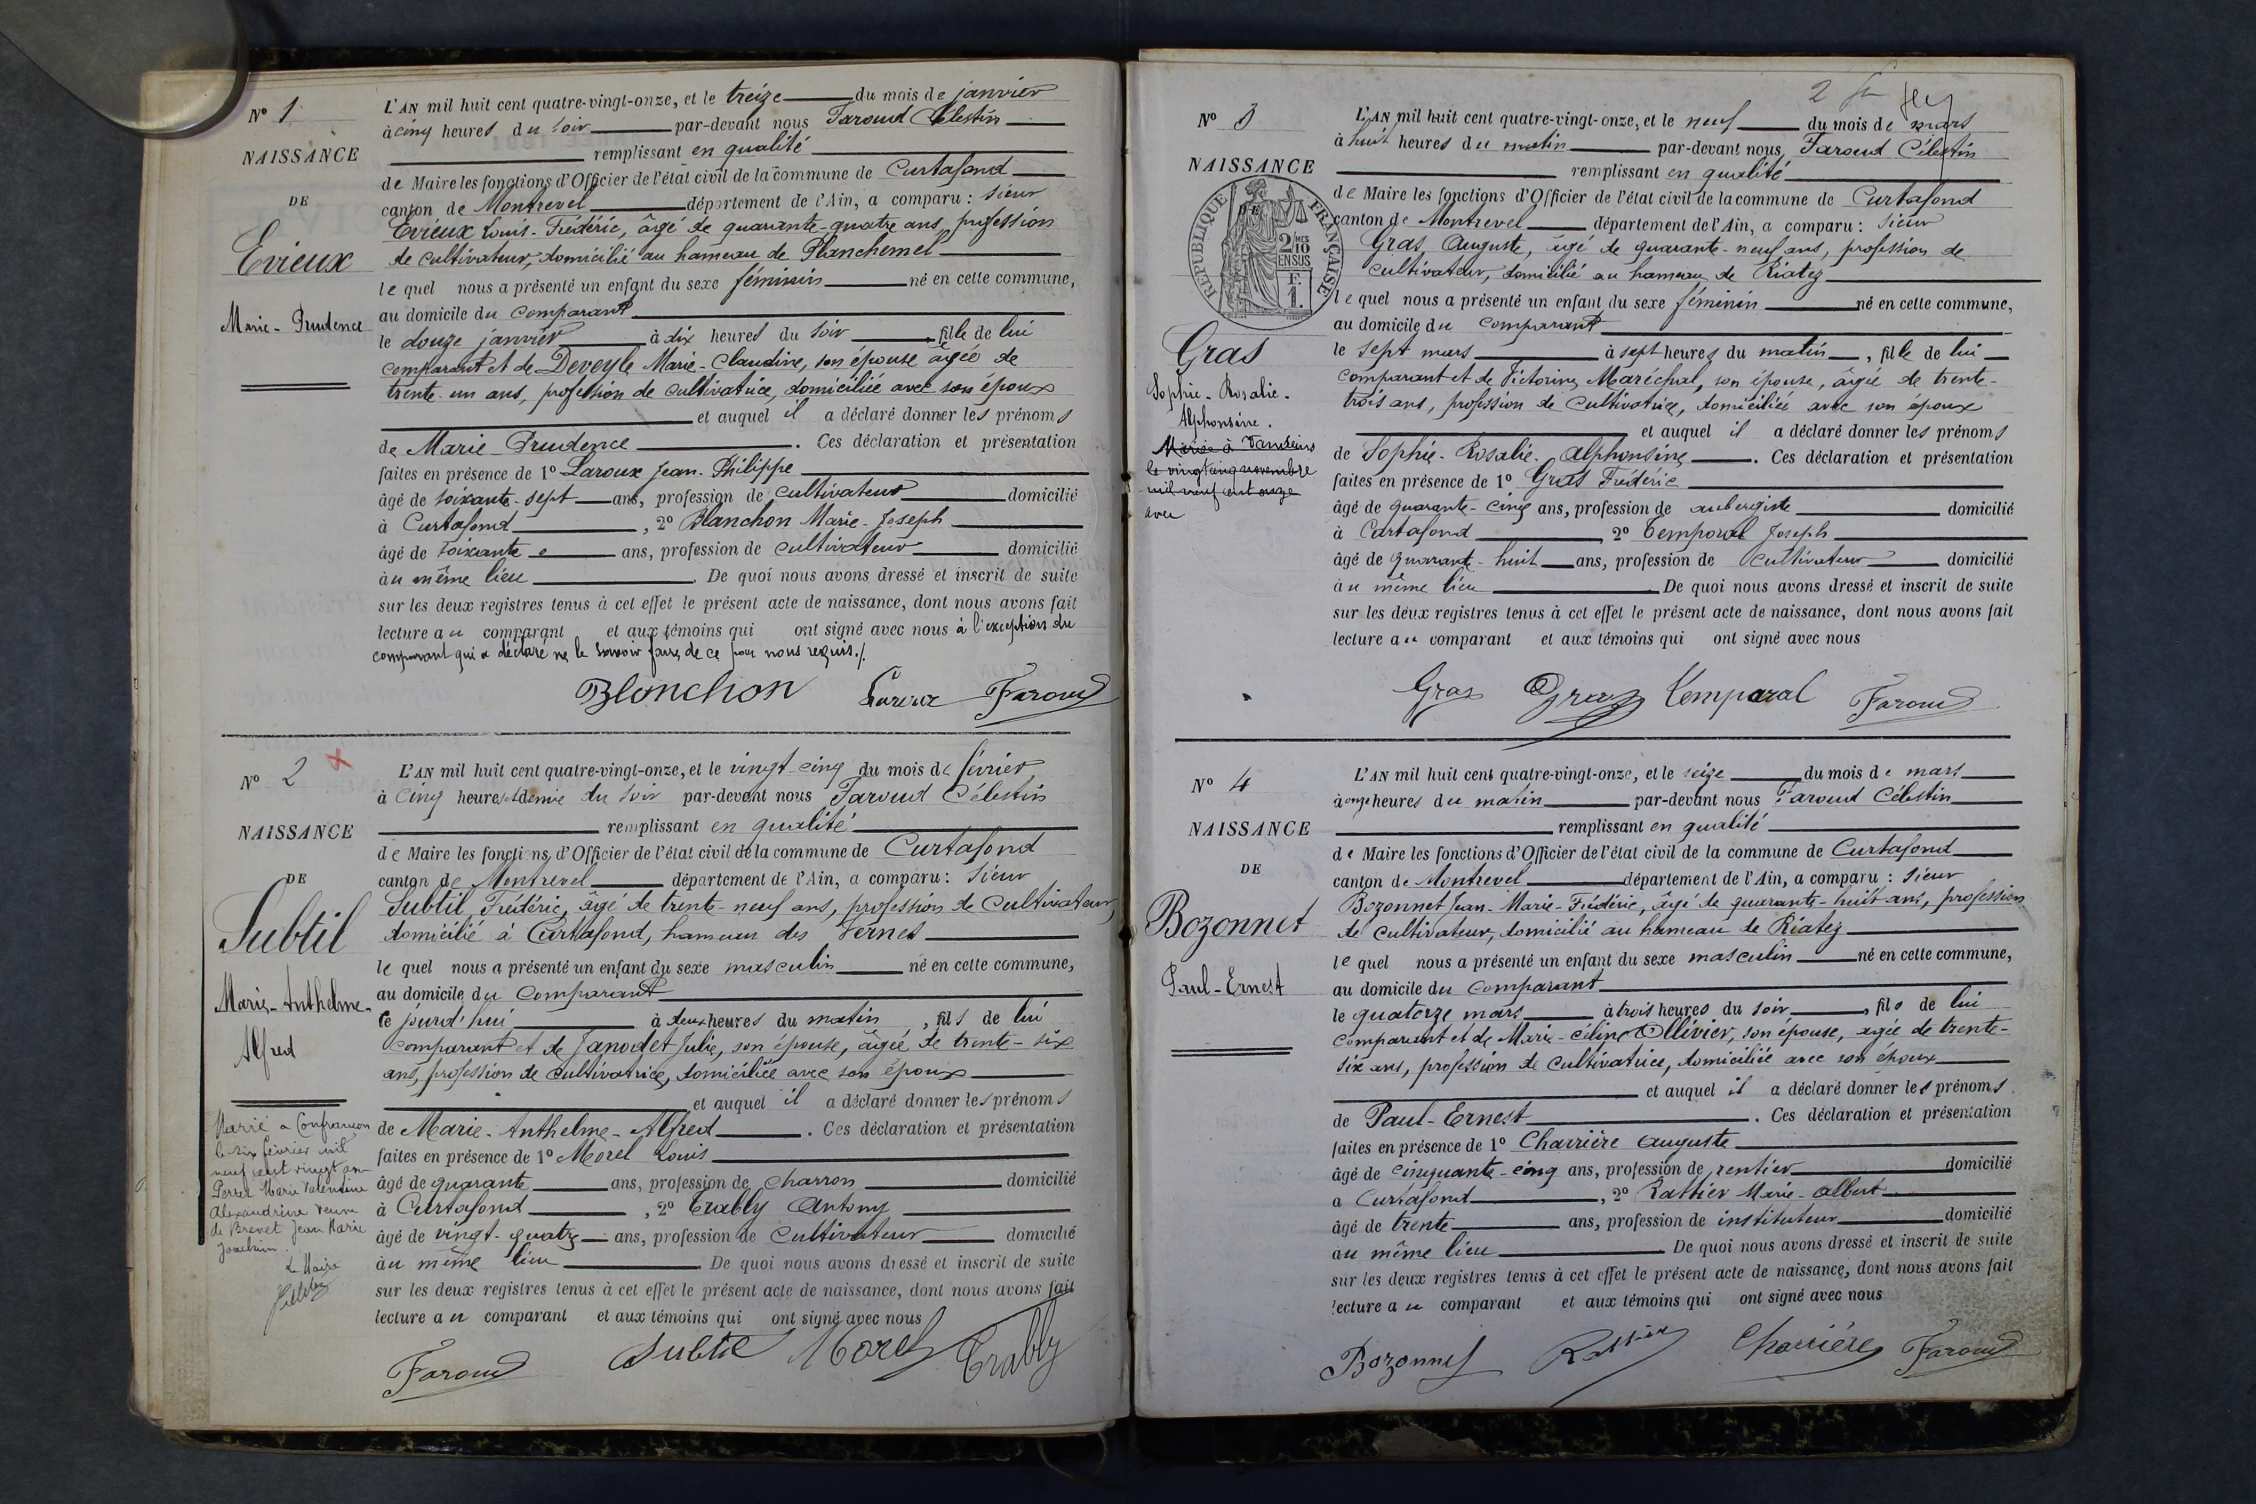 N° 1
NAISSANCE
DE
Evieux
Marie-Prudence
L'AN mil huit cent quatre-vingt-onze, et le treize du mois de janvier
à cinq heures du soir par-devant nous Faroud Célestin
remplissant en qualité
de Maire les fonctions d'Officier de l'état civil de la commune de Curtafond
canton de Montrevel département de l'Ain, a comparu : sieur
Evieux Louis-Frédéric, âgé de quarante-quatre ans, profession
de cultivateur, domicilié au hameau de Planchemel
lequel nous a présenté un enfant du sexe féminin né en cette commune,
au domicile du comparant
le douze janvier à dix heures du soir fille de lui
comparant et de Deveyle Marie-Claudine, son épouse âgée de
trente-un ans, profession de cultivatrice, domiciliée avec son époux
et auquel il a déclaré donner les prénoms
de Marie Prudence . Ces déclaration et présentation
faites en présence de 1° Laroux Jean-Philippe
âgé de soixante-sept ans, profession de cultivateur domicilié
à Curtafond , 2° Blanchon Marie-Joseph
âgé de soixante ans, profession de cultivateur domicilié
au même lieu . De quoi nous avons dressé et inscrit de suite
sur les deux registres tenus à cet effet le présent acte de naissance, dont nous avons fait
lecture au comparant et aux témoins qui ont signé avec nous à l'exception du
comparant qui a déclaré ne le savoir faire, de ce par nous requis ./.
Blonchon Laroux Faroud
N° 2
NAISSANCE
DE
Subtil
Marie-Anthelme-
Alfred
Marié à Confrançon
le six février mil
neuf cent vingt un
Perret Marie Valentine
Alexandrine veuve
de Brevet Jean Marie
Joachim.
Le Maire
L'AN mil huit cent quatre-vingt-onze, et le vingt-cinq du mois de février
à cinq heures et demie du soir par-devant nous Faroud Célestin
remplissant en qualité
de Maire les fonctions d'Officier de l'état civil de la commune de Curtafond
canton de Montrevel département de l'Ain, a comparu : sieur
Subtil, Frédéric, âgé de trente-neuf ans, profession de cultivateur,
domicilié à Curtafond, hameau des Vernes
lequel nous a présenté un enfant du sexe masculin né en cette commune,
au domicile du comparant
le jourd'hui à deux heures du matin , fils de lui
comparant et de Janodet Julie, son épouse, âgée de trente-six
ans, profession de cultivatrice, domiciliée avec son époux
et auquel il a déclaré donner les prénoms
de Marie-Anthelme-Alfred . Ces déclaration et présentation
faites en présence de 1° Morel Louis
âgé de quarante ans, profession de charron domicilié
à Curtafond , 2° Trably Antony
âgé de vingt-quatre ans, profession de cultivateur domicilié
au même lieu De quoi nous avons dressé et inscrit de suite
sur les deux registres tenus à cet effet le présent acte de naissance, dont nous avons fait
lecture au comparant et aux témoins qui ont signé avec nous
Faroud Subtil Morel Trably
2
N° 3
NAISSANCE
DE
RÉPUBLIQUE FRANÇAISE
2/10
EN SUS
F.
1.
Gras
Sophie-Rosalie-
Alphonsine.
Mariée à Vandeins
le vingt cinq novembre
mil neuf cent onze
avec
L'AN mil huit cent quatre-vingt-onze, et le neuf du mois de mars
à huit heures du matin par-devant nous, Faroud Célestin
remplissant en qualité
de Maire les fonctions d'Officier de l'état civil de la commune de Curtafond
canton de Montrevel département de l'Ain, a comparu : sieur
Gras Auguste, âgé de quarante-neuf ans, profession de
cultivateur, domicilié au hameau de Riatez
lequel nous a présenté un enfant du sexe féminin né en cette commune,
au domicile du comparant
le sept mars à sept heures du matin , fille de lui
comparant et de Victorine Maréchal, son épouse, âgée de trente-
trois ans, profession de cultivatrice, domiciliée avec son époux
et auquel il a déclaré donner les prénoms
de Sophie-Rosalie-Alphonsine . Ces déclaration et présentation
faites en présence de 1° Gras Frédéric
âgé de quarante-cinq ans, profession de aubergiste domicilié
à Curtafond , 2° Temporal Joseph
âgé de quarante-huit ans, profession de cultivateur domicilié
au même lieu De quoi nous avons dressé et inscrit de suite
sur les deux registres tenus à cet effet le présent acte de naissance, dont nous avons fait
lecture au comparant et aux témoins qui ont signé avec nous
Gras Gras Temporal Faroud
N° 4
NAISSANCE
DE
Bozonnet
Paul-Ernest
L'AN mil huit cent quatre-vingt-onze, et le seize du mois de mars
à onze heures du matin par-devant nous Faroud Célestin
remplissant en qualité
de Maire les fonctions d'Officier de l'état civil de la commune de Curtafond
canton de Montrevel département de l'Ain, a comparu : sieur
Bozonnet Jean-Marie-Frédéric, âgé de quarante-huit ans, profession
de cultivateur, domicilié au hameau de Riatez
lequel nous a présenté un enfant du sexe masculin né en cette commune,
au domicile du comparant
le quatorze mars à trois heures du soir , fils de lui
comparant et de Marie-Céline Ollivier, son épouse, âgée de trente-
six ans, profession de cultivatrice, domiciliée avec son époux
et auquel il a déclaré donner les prénoms
de Paul-Ernest . Ces déclaration et présentation
faites en présence de 1° Charrière Auguste
âgé de cinquante-cinq ans, profession de rentier domicilié
à Curtafond , 2° Rattier Marie-Albert
âgé de trente ans, profession de instituteur domicilié
au même lieu De quoi nous avons dressé et inscrit de suite
sur les deux registres tenus à cet effet le présent acte de naissance, dont nous avons fait
lecture au comparant et aux témoins qui ont signé avec nous
Bozonnet Rattier Charrière Faroud